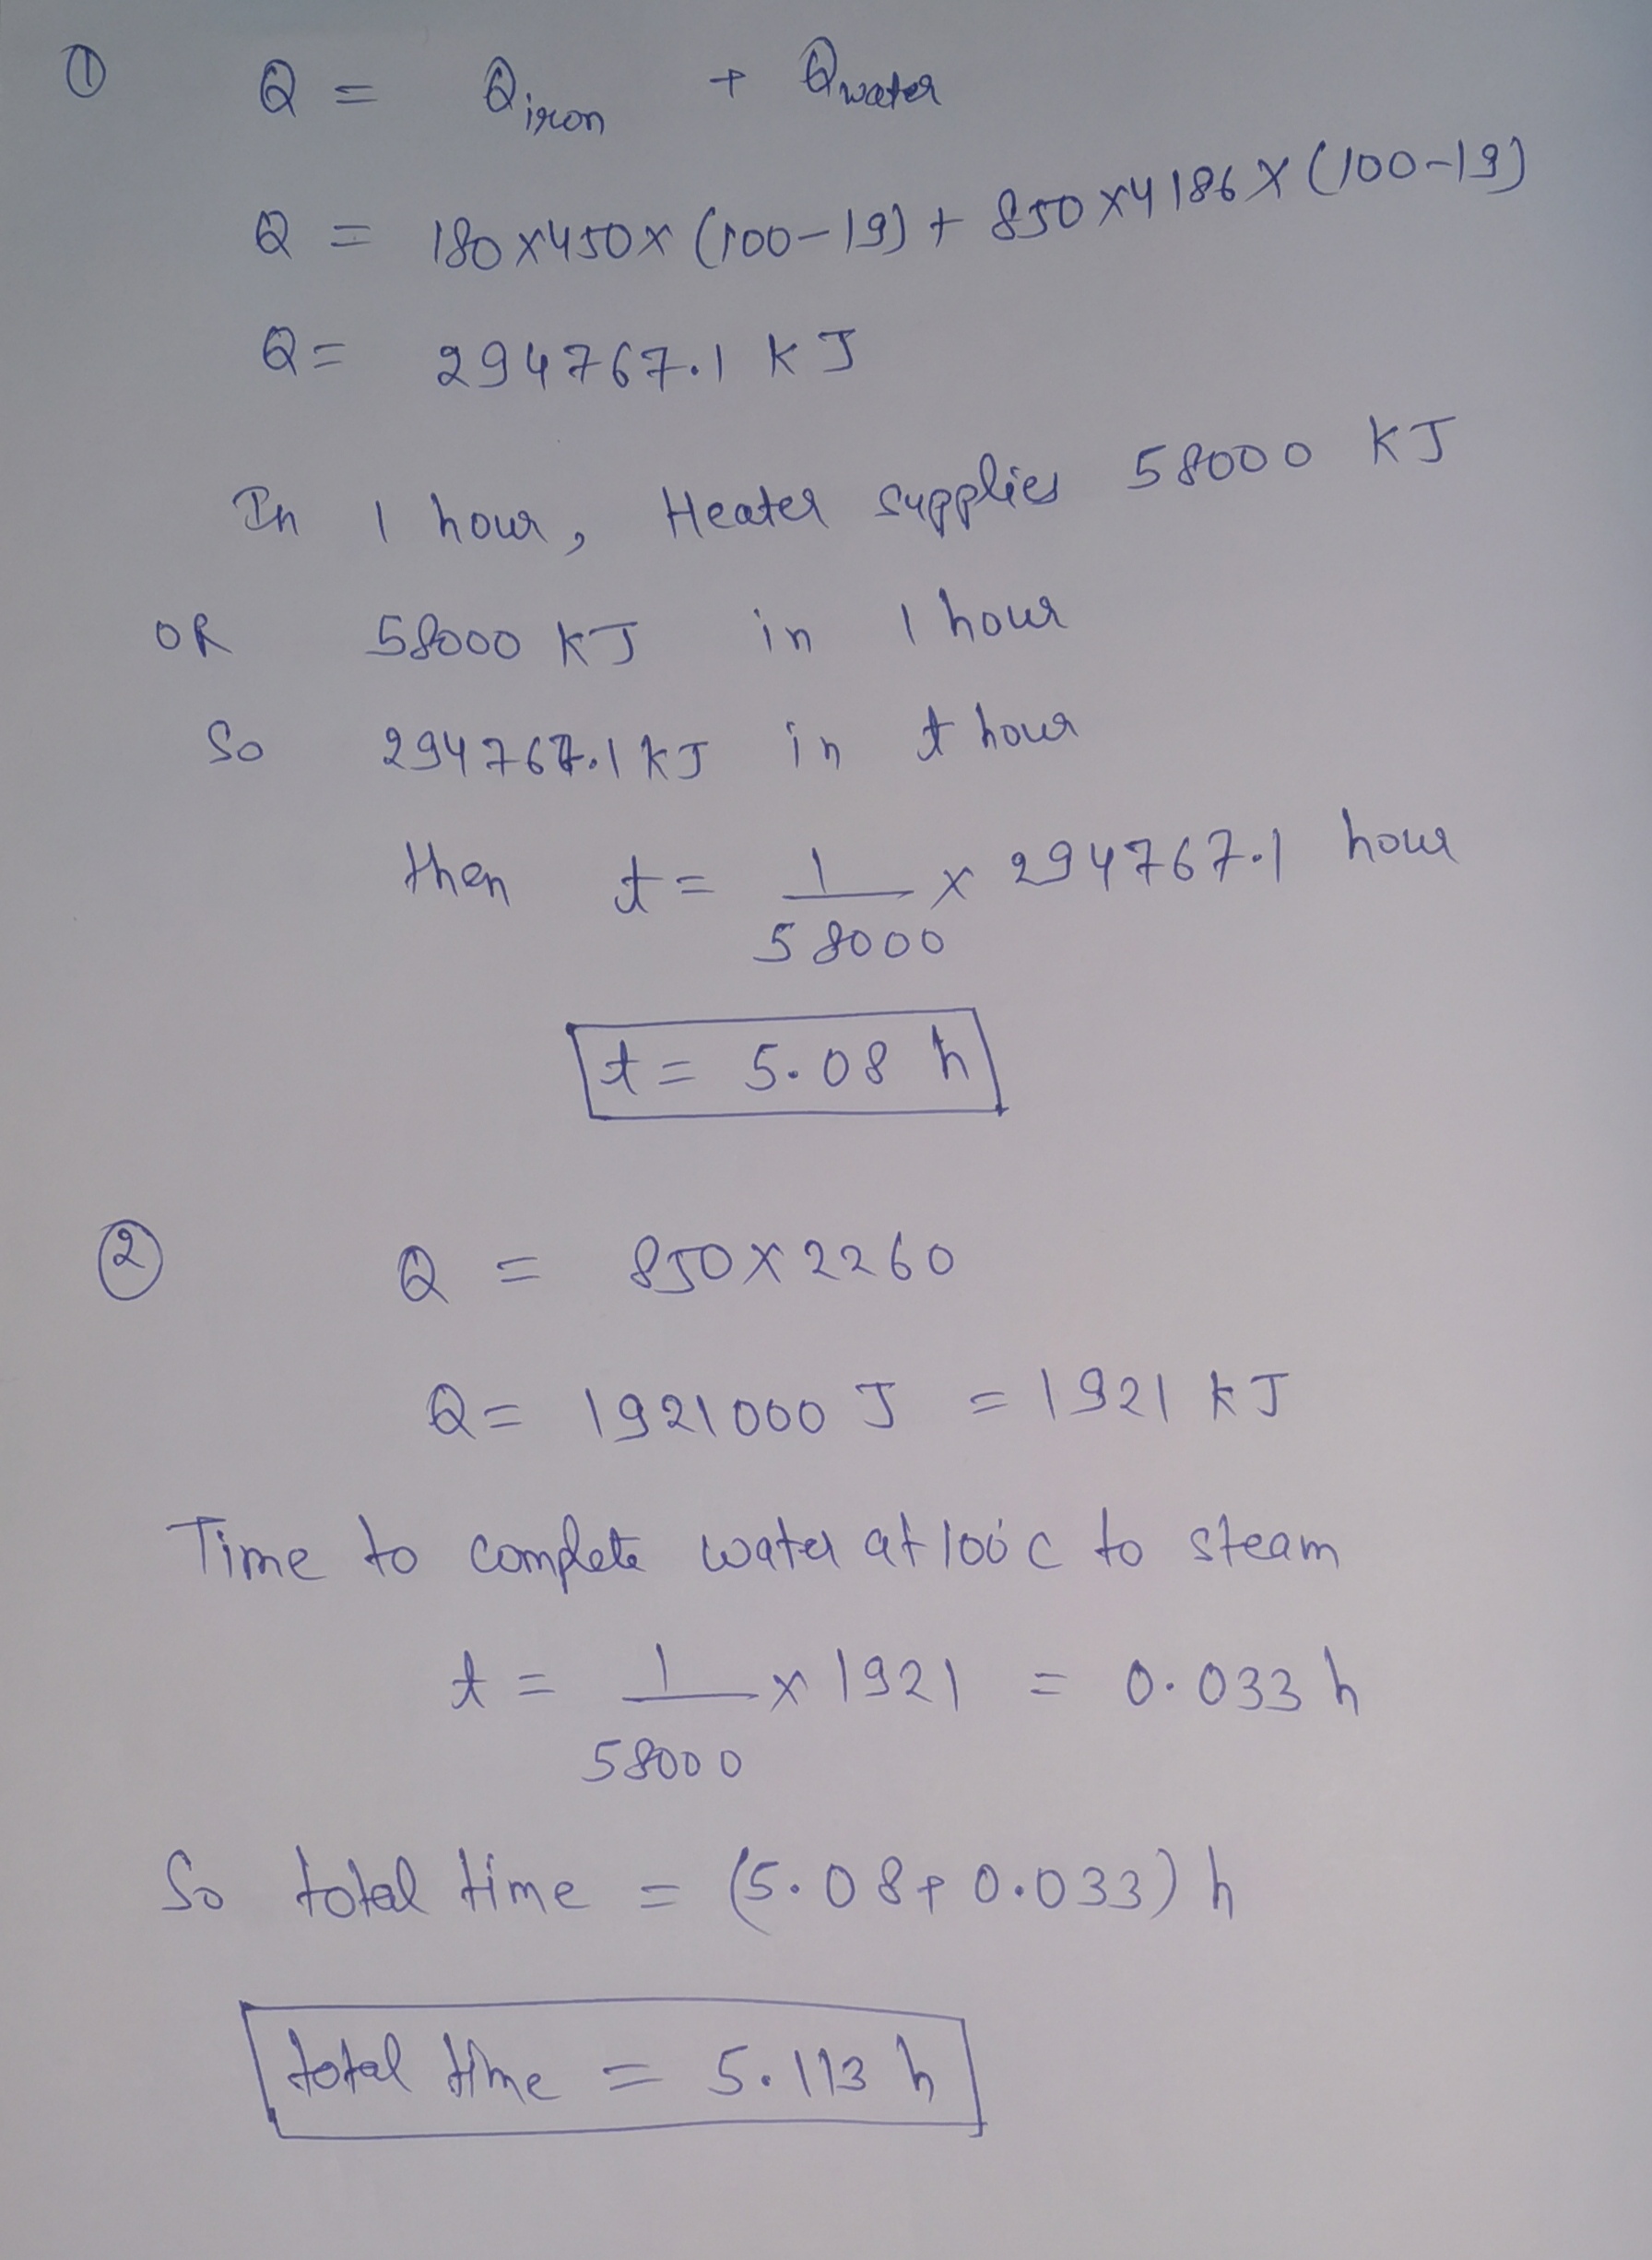 ① Q = Qiron + Qwater
Q = 180×450×(100-19) + 850×4186×(100-19)
Q = 294767.1 KJ
In 1 hour, Heater supplies 58000 KJ
OR 58000 KJ in 1 hour
So 294767.1 KJ in t hour
then t = 1/58000 × 294767.1 hour
t = 5.08 h
② Q = 850×2260
Q = 1921000 J = 1921 KJ
Time to complete water at 100°c to steam
t = 1/58000 × 1921 = 0.033 h
So total time = (5.08+0.033) h
total time = 5.113 h